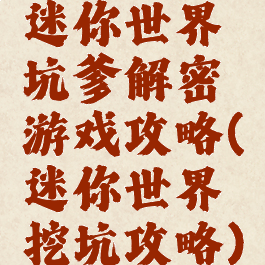 迷你世界
坑爹解密
游戏攻略(
迷你世界
挖坑攻略)